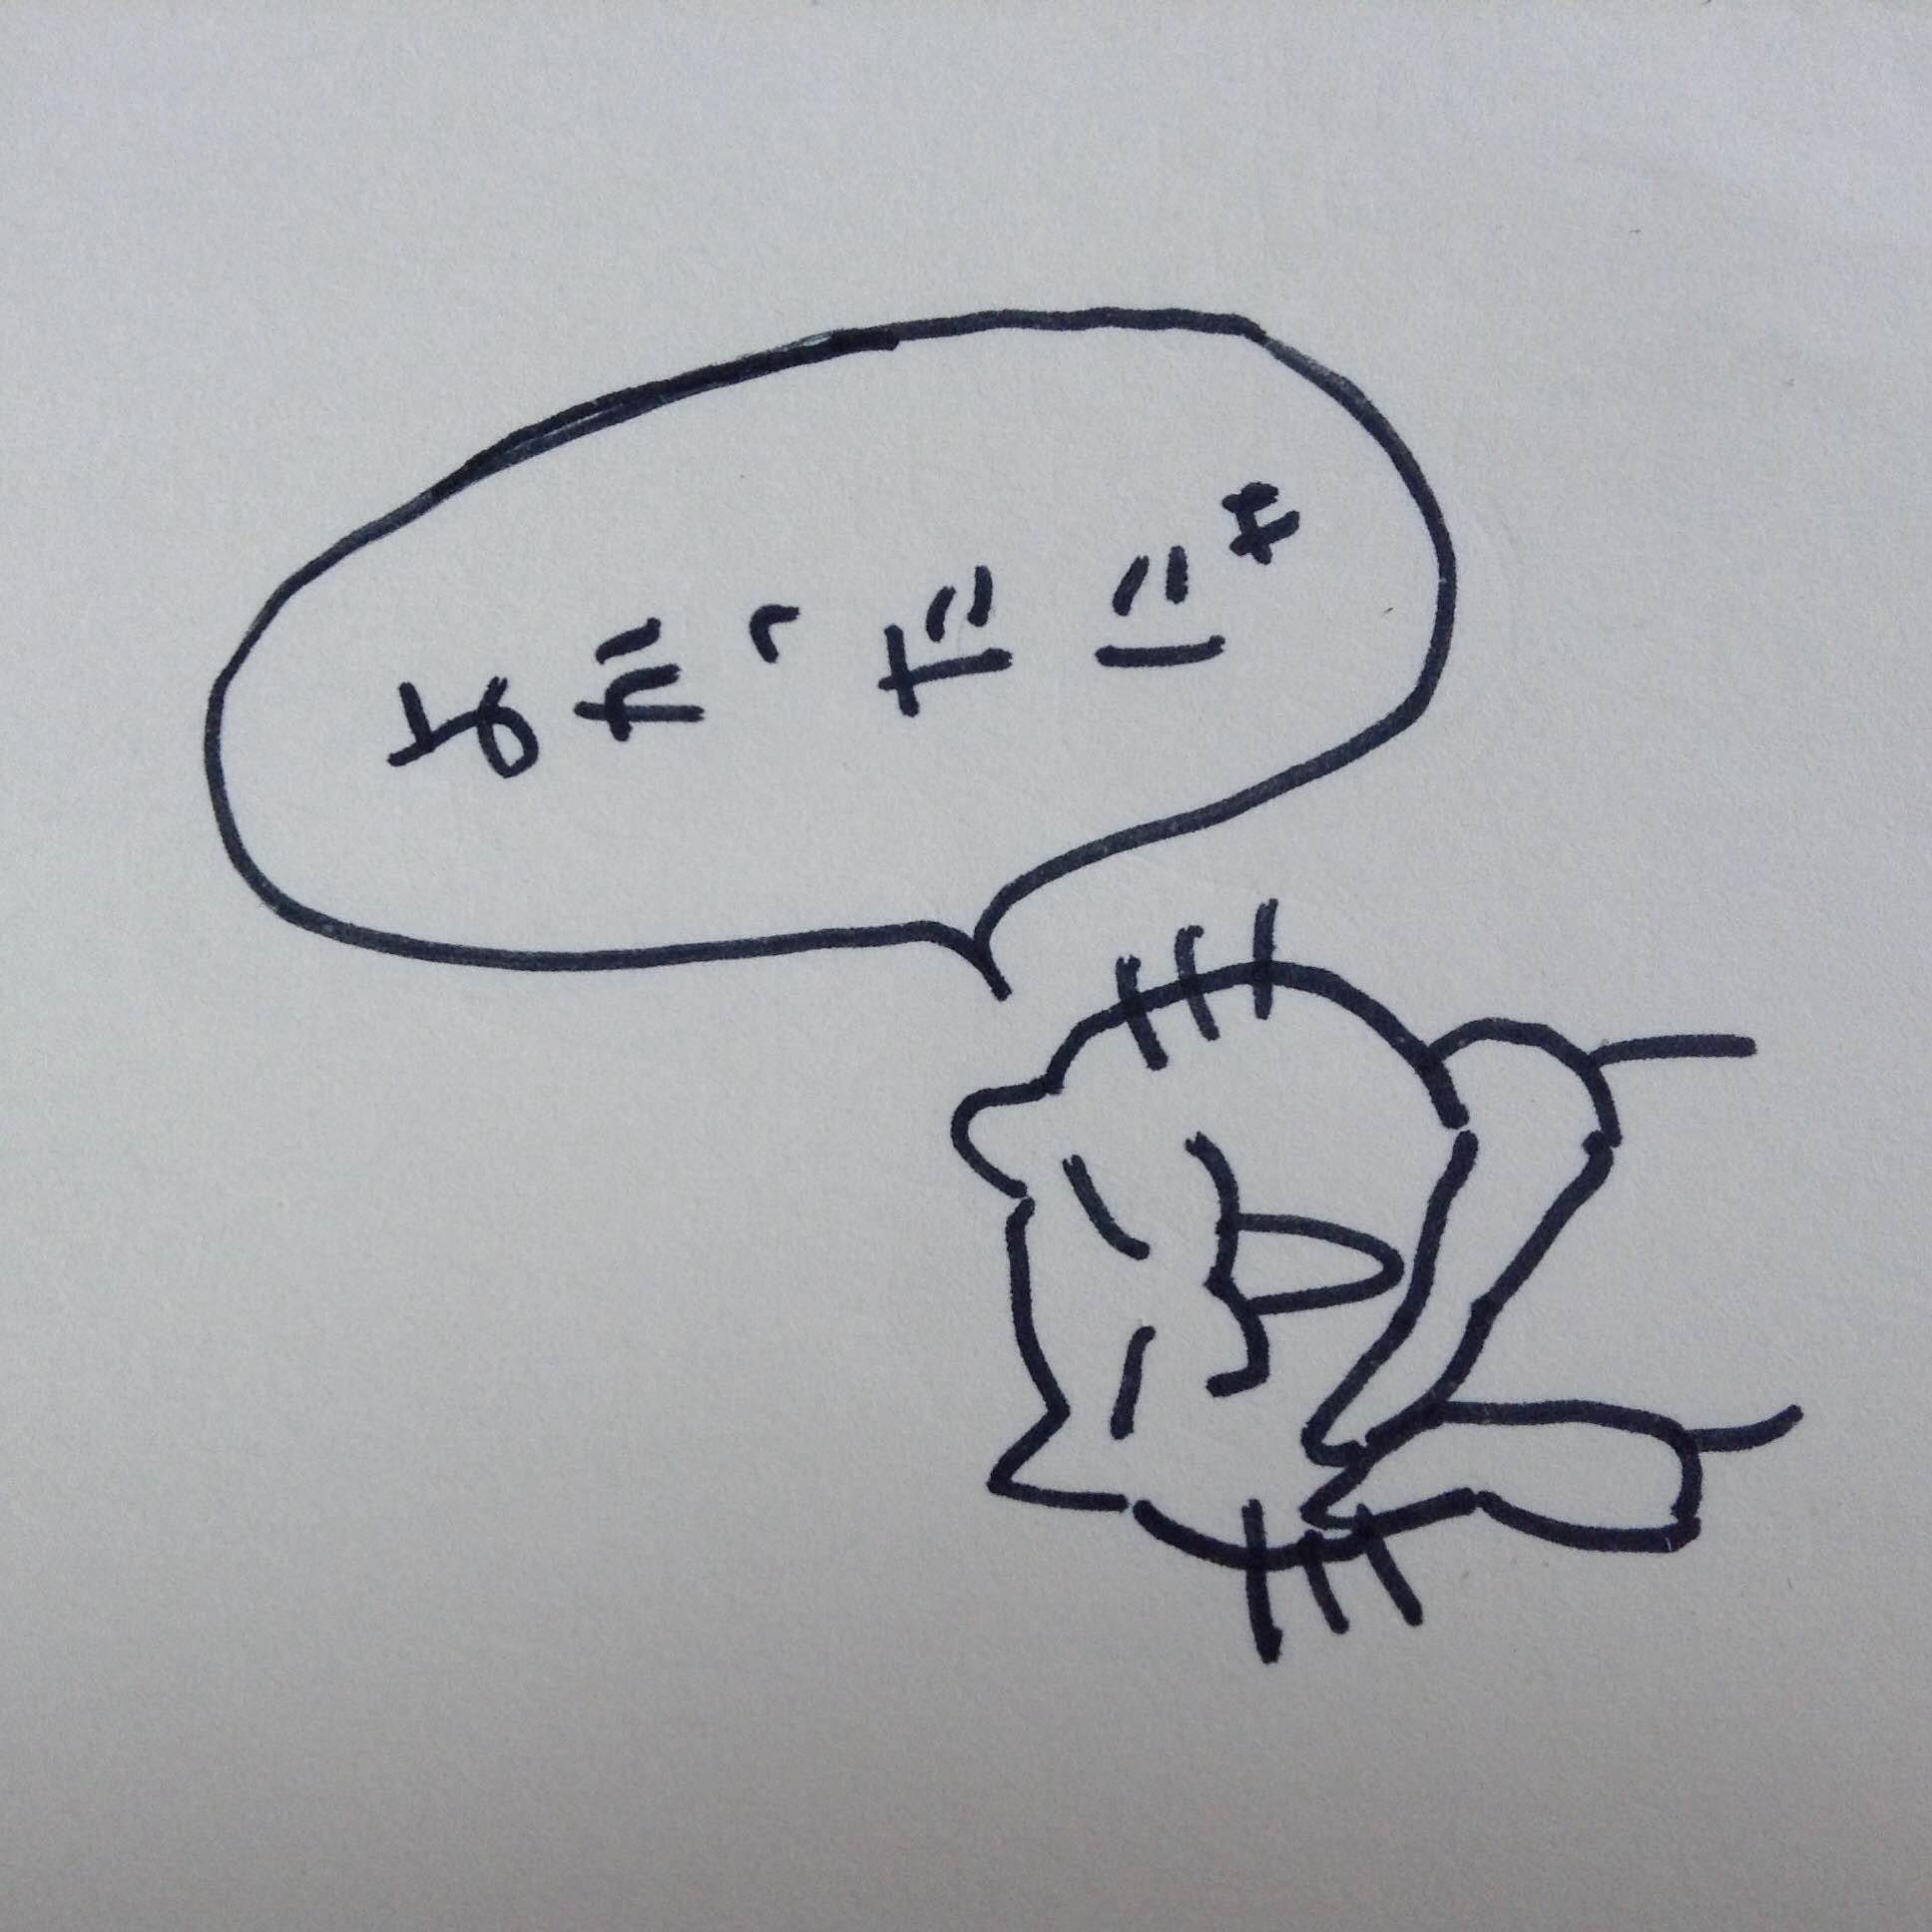 よかったにゃ